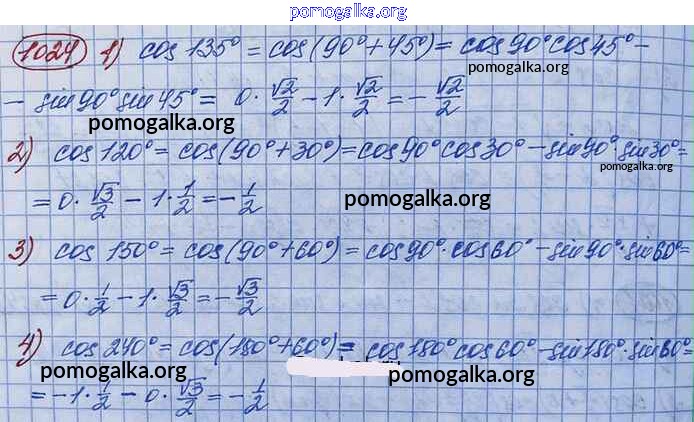 pomogalka.org
1024 1) cos 135° = cos(90° + 45°) = cos 90° cos 45° -
pomogalka.org
- sin 90° sin 45° = 0 · √2/2 - 1 · √2/2 = - √2/2
pomogalka.org
2) cos 120° = cos(90° + 30°) = cos 90° cos 30° - sin 90° · sin 30° =
pomogalka.org
= 0 · √3/2 - 1 · 1/2 = - 1/2
pomogalka.org
3) cos 150° = cos(90° + 60°) = cos 90° · cos 60° - sin 90° · sin 60° =
= 0 · 1/2 - 1 · √3/2 = - √3/2
4) cos 240° = cos(180° + 60°) = cos 180° cos 60° - sin 180° · sin 60° =
pomogalka.org
pomogalka.org
= -1 · 1/2 - 0 · √3/2 = - 1/2